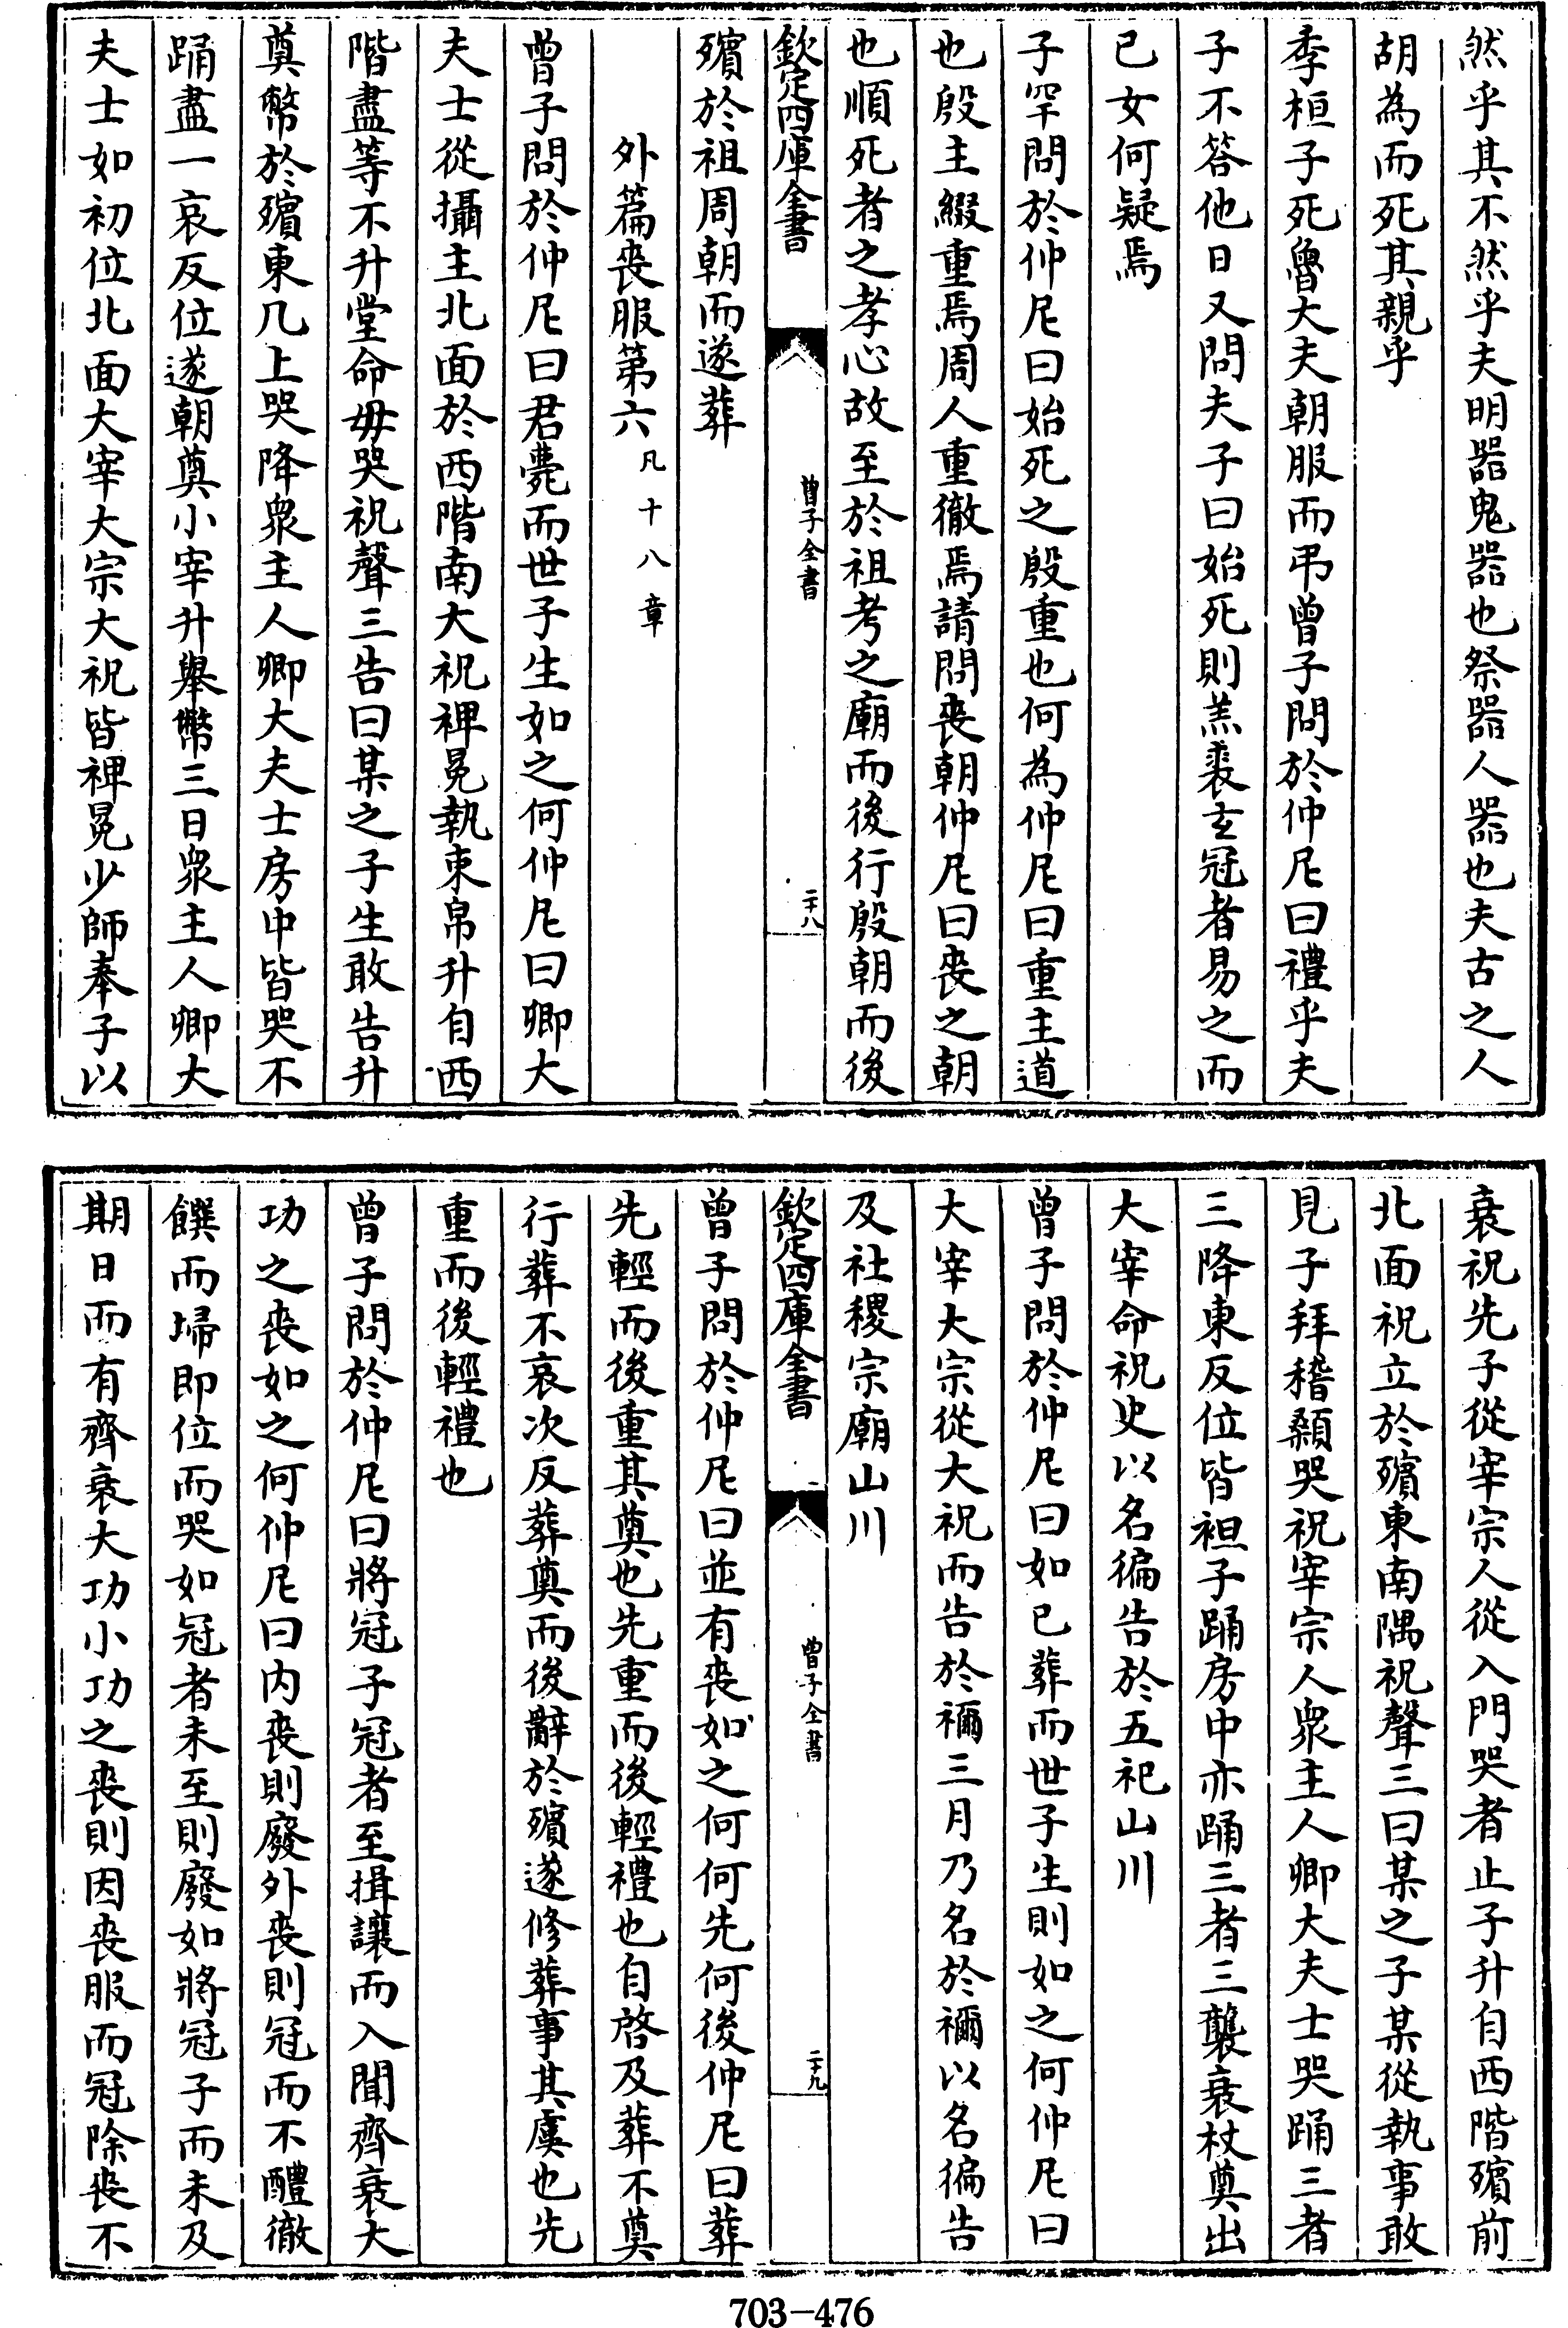 然乎其不然乎夫明器鬼器也祭器人器也夫古之人
胡為而死其親乎
季桓子死魯大夫朝服而弔曾子問於仲尼曰禮乎夫
子不答他日又問夫子曰始死則羔裘玄冠者易之而
已女何疑焉
子罕問於仲尼曰始死之殷重也何為仲尼曰重主道
也殷主綴重焉周人重徹焉請問喪朝仲尼曰喪之朝
也順死者之孝心故至於祖考之廟而後行殷朝而後
欽定四庫全書
曾子全書
二十八
殯於祖周朝而遂葬
外篇喪服第六凡十八章
曾子問於仲尼曰君薨而世子生如之何仲尼曰卿大
夫士從攝主北面於西階南大祝裨冕執束帛升自西
階盡等不升堂命毋哭祝聲三告曰某之子生敢告升
奠幣於殯東几上哭降衆主人卿大夫士房中皆哭不
踊盡一哀反位遂朝奠小宰升舉幣三日衆主人卿大
夫士如初位北面大宰大宗大祝皆裨冕少師奉子以
衰祝先子從宰宗人從入門哭者止子升自西階殯前
北面祝立於殯東南隅祝聲三曰某之子某從執事敢
見子拜稽顙哭祝宰宗人衆主人卿大夫士哭踊三者
三降東反位皆袒子踊房中亦踊三者三襲衰杖奠出
大宰命祝史以名徧告於五祀山川
曾子問於仲尼曰如已葬而世子生則如之何仲尼曰
大宰大宗從大祝而告於禰三月乃名於禰以名徧告
及社稷宗廟山川
欽定四庫全書
曾子全書
二十九
曾子問於仲尼曰並有喪如之何何先何後仲尼曰葬
先輕而後重其奠也先重而後輕禮也自啓及葬不奠
行葬不哀次反葬奠而後辭於殯遂修葬事其虞也先
重而後輕禮也
曾子問於仲尼曰將冠子冠者至揖讓而入聞齊衰大
功之喪如之何仲尼曰内喪則廢外喪則冠而不醴徹
饌而埽即位而哭如冠者未至則廢如將冠子而未及
期日而有齊衰大功小功之喪則因喪服而冠除喪不
703-476